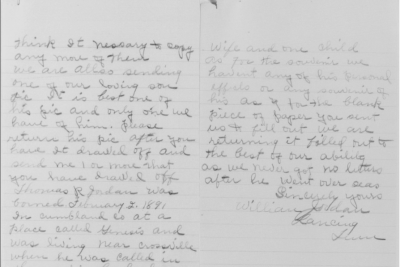 think it nessary to copy
any more of them
we are allso sending
one of our loving son
pic it is best one of
his pic and only one we
have of him. Please
return his pic after you
have it drawed off and
send me 1 or more that
you have drawed off
Thomas R Jordan was
borned February 2. 1891
In cumbland co at a
place called Genesis and
was living near crossville
when he was called in
Wife and one child
as for the souvenir we
havent any of his personal
effects or any souvenir of
his as for the blank
piece of paper you sent
us to fill out we are
returning it filled out to
the best of our ability
as we never got no letters
after he went over seas
Sincerly yours
William Jordan
Lancing
Tenn